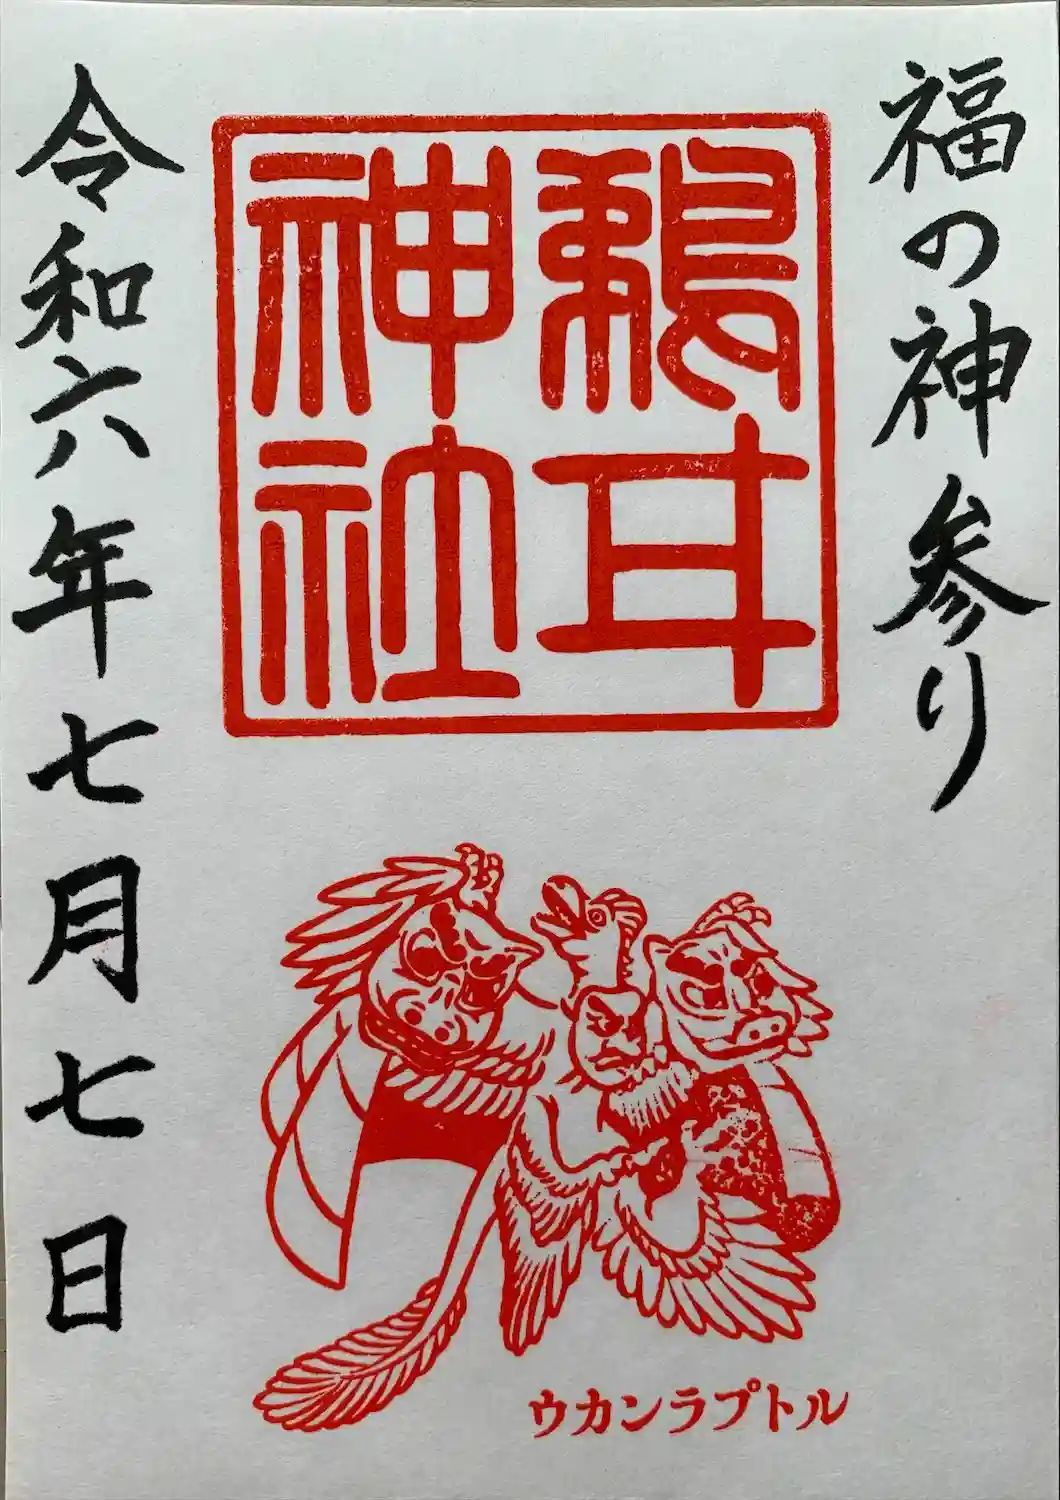 福の神参り
鵜甘
神社
ウカンラプトル
令和六年七月七日